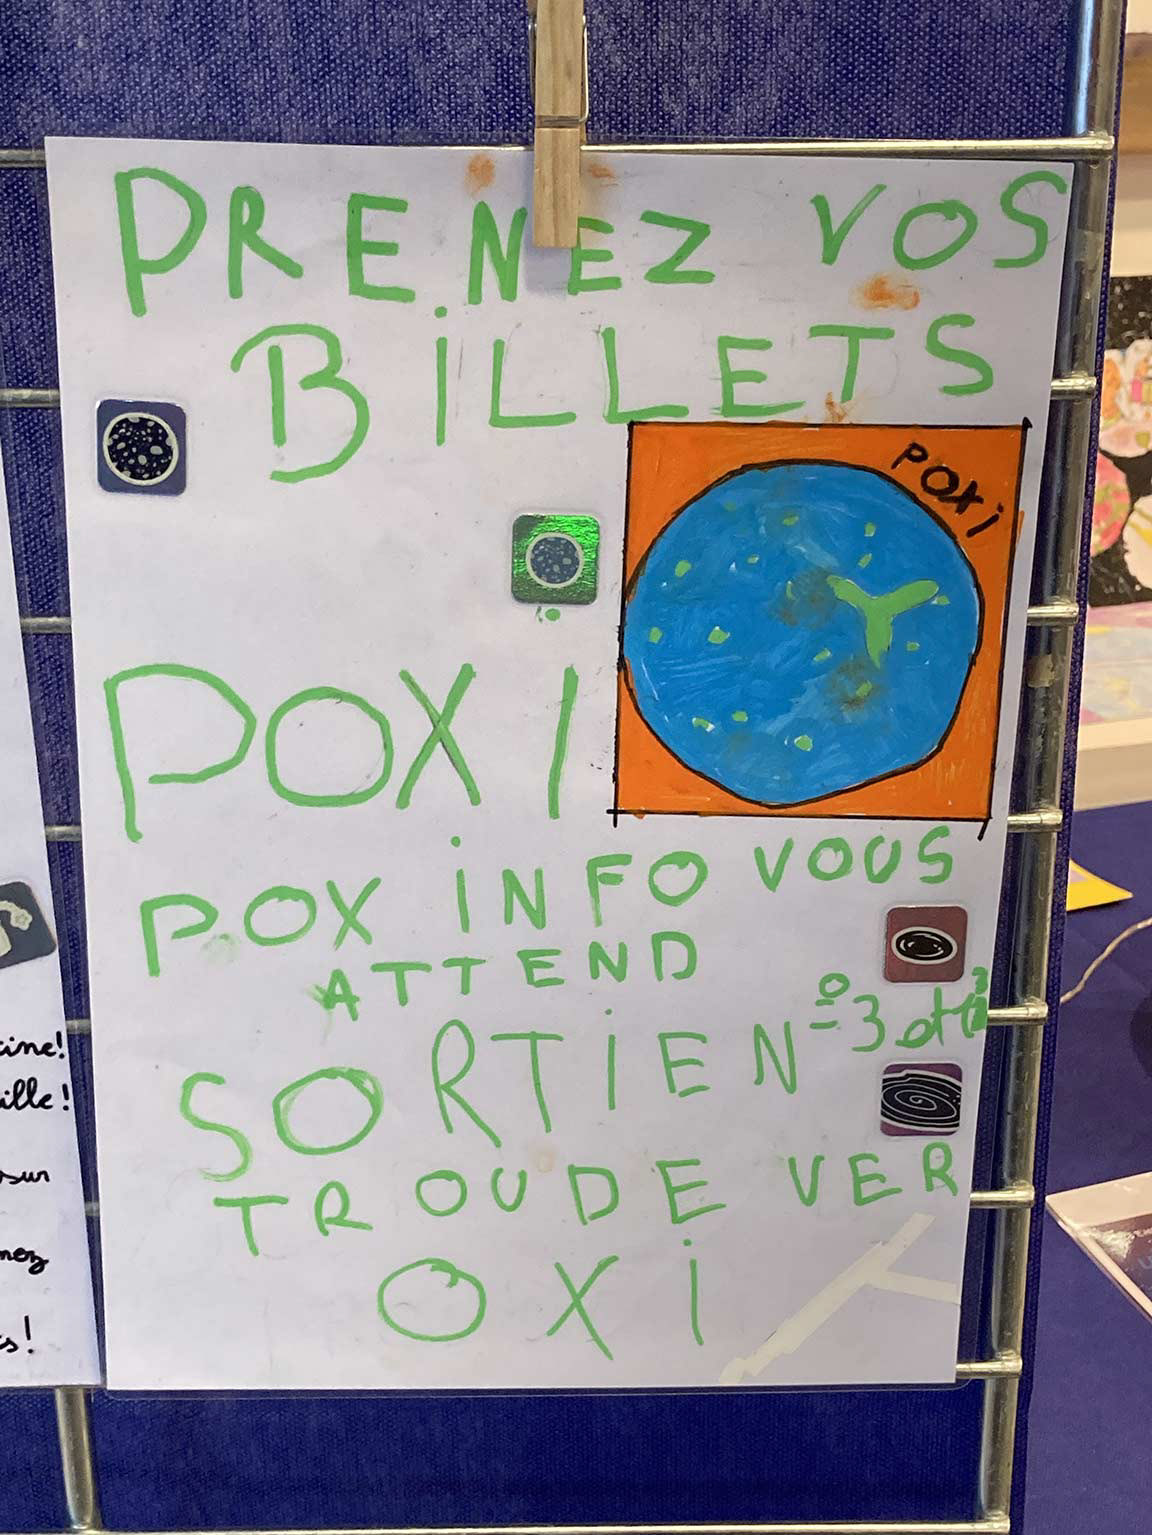 PRENEZ VOS
BILLETS
POXI
POXI
POX INFO VOUS
ATTEND
SORTIE N° 3 et
TROU DE VER
OXI
ille!
sur
nez
s!